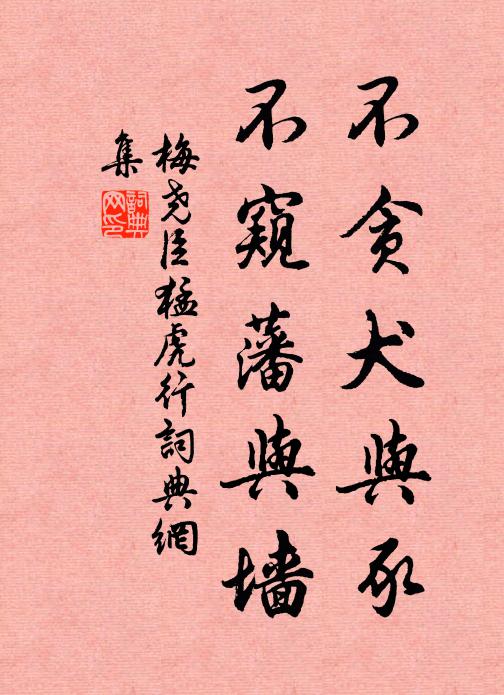 不貪犬與豕
不窺藩與墙
梅堯臣猛虎行詞典網
集
詞典
网印